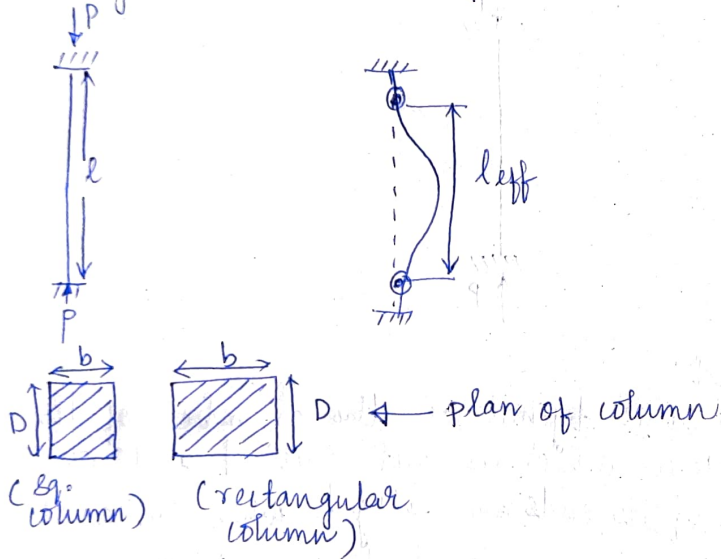 P
l
P
l eff
b
b
D
D ← plan of column
(sq. column)
(rectangular column)